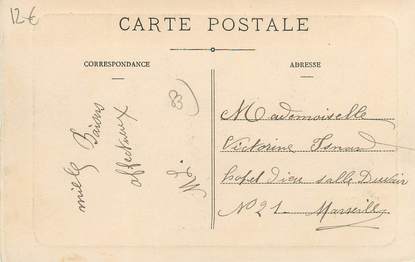 12€
CARTE POSTALE
CORRESPONDANCE
ADRESSE
mille Baisers
affectueux
Md.
83
Mademoiselle
Victorine Isnard
hotel dieu salle
No 21. Marseille